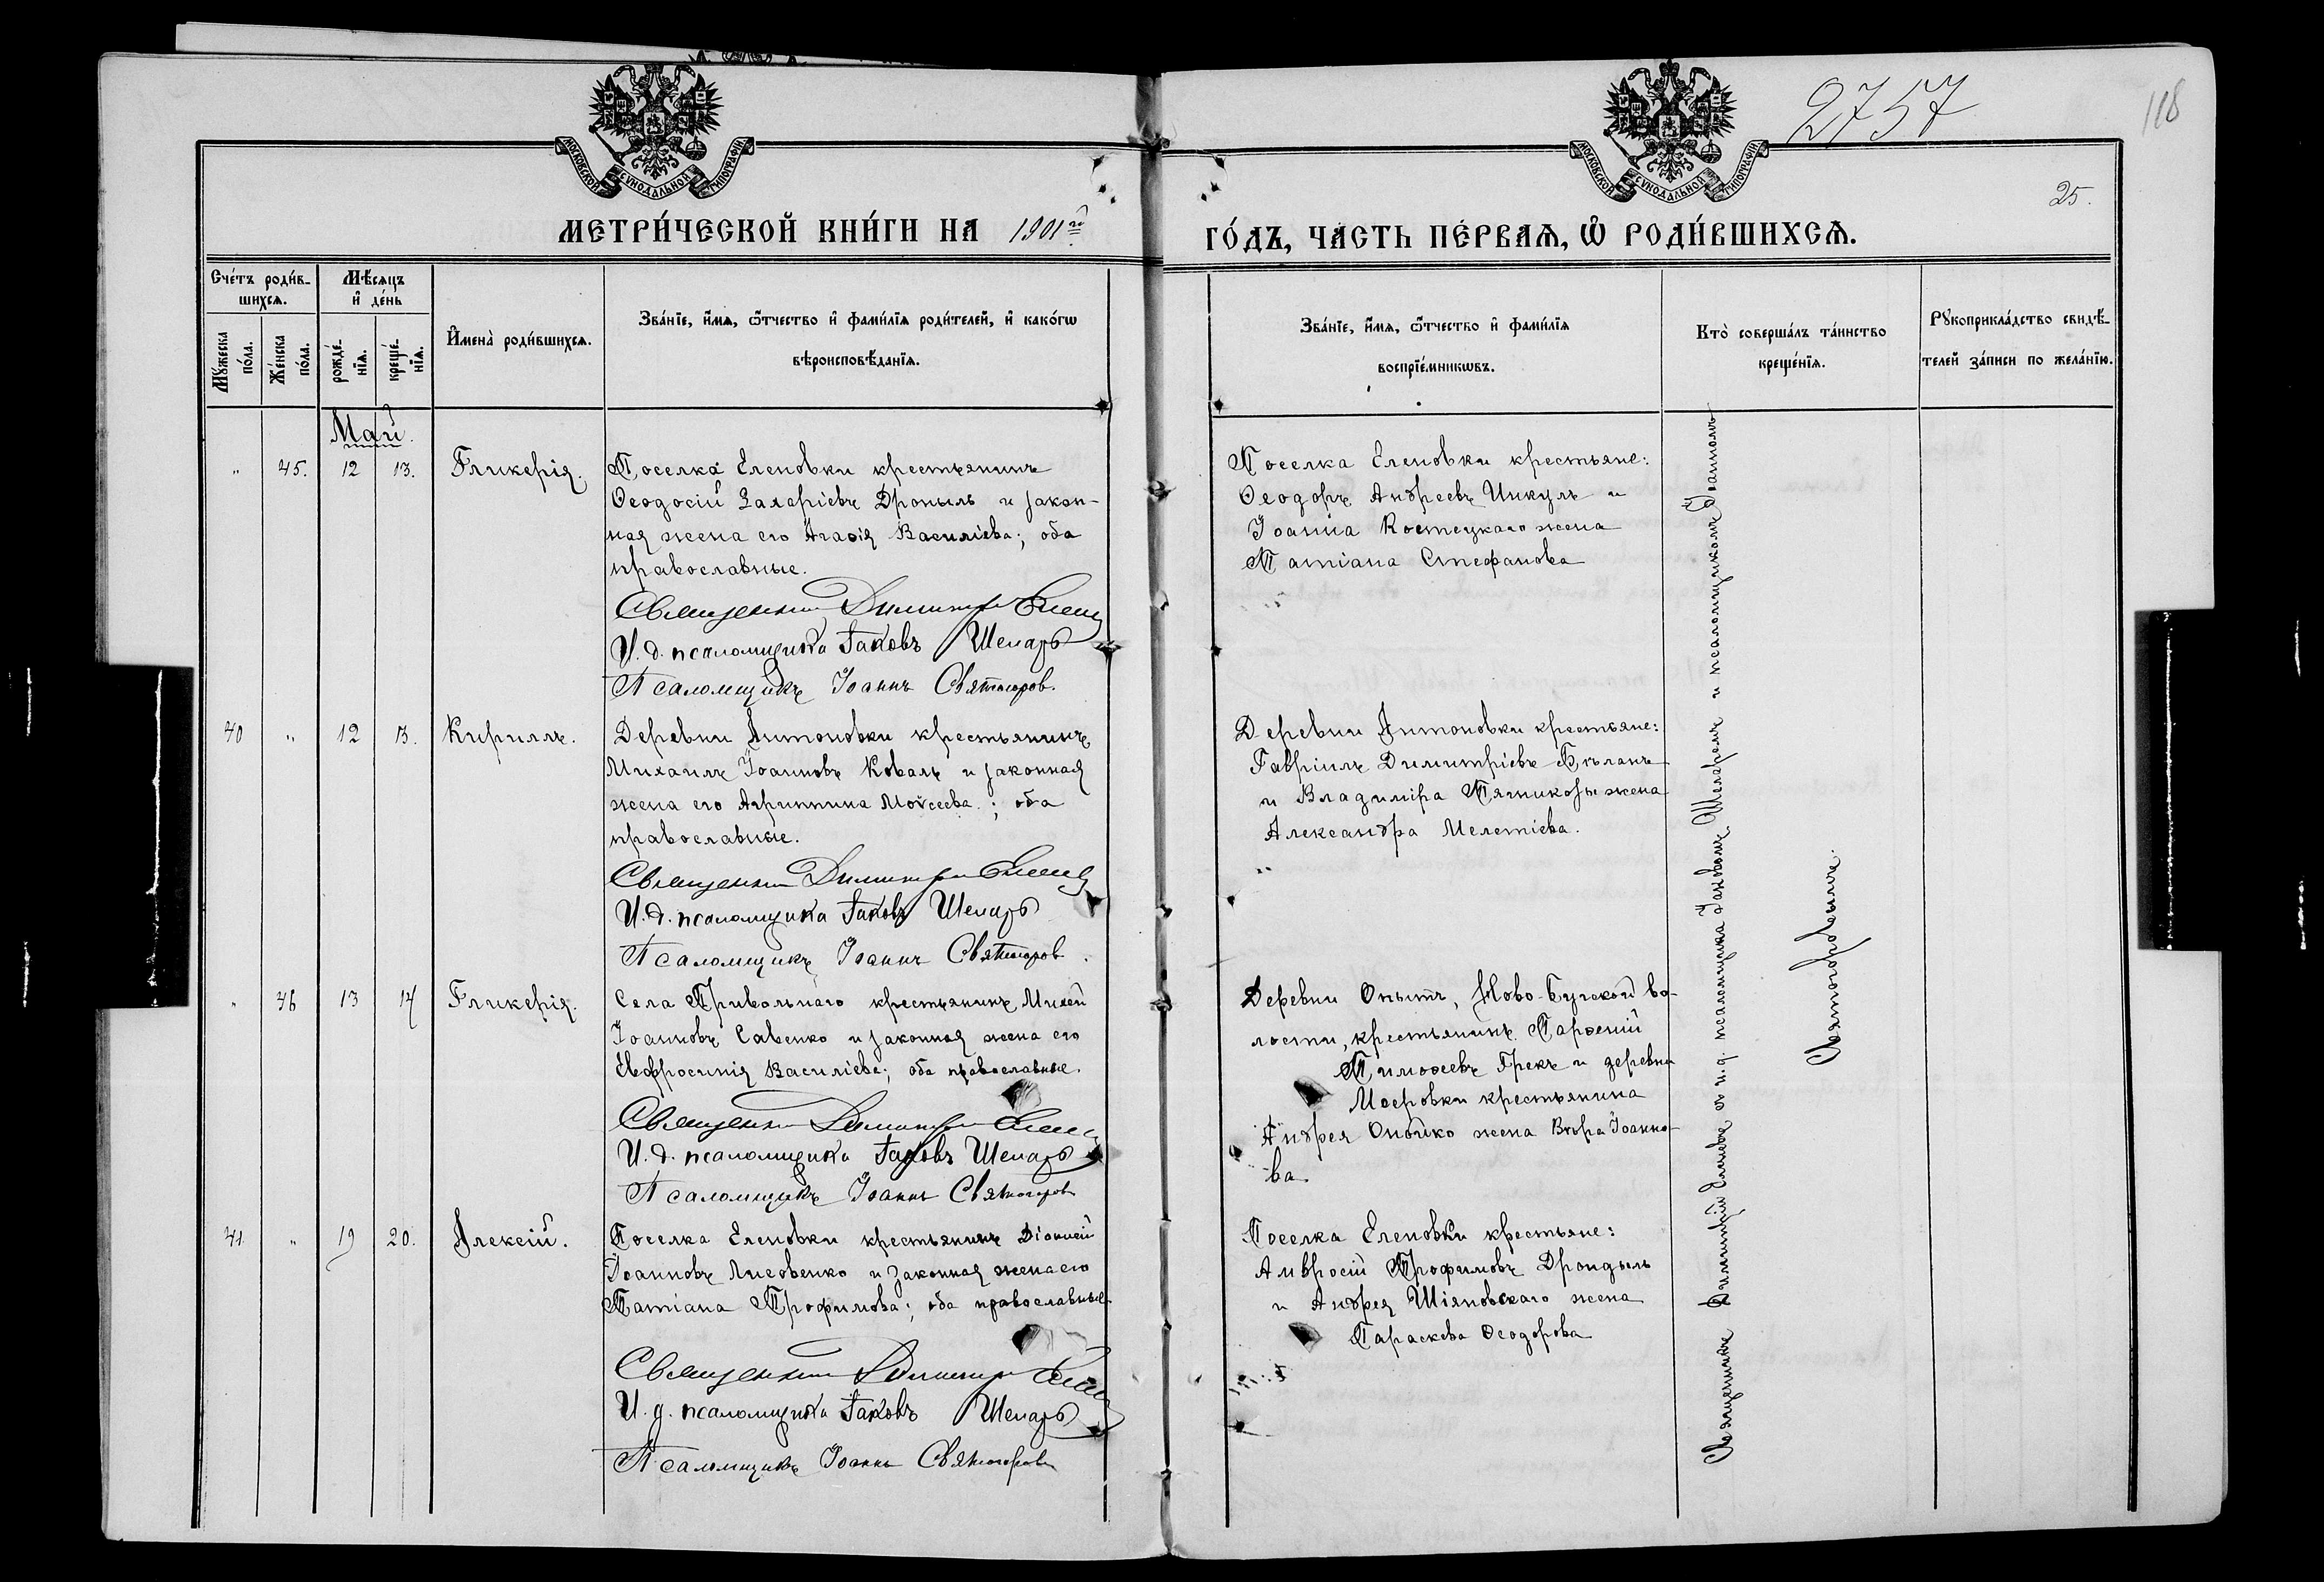 2757
118
МОСКОВСКОЙ СѴНОДАЛЬНОЙ ТИПОГРАФІИ
МОСКОВСКОЙ СѴНОДАЛЬНОЙ ТИПОГРАФІИ
25.
МЕТРИ́ЧЕСКОЙ КНИ́ГИ НА 1901й
ГО́ДЪ, ЧА́СТЬ ПЕ́РВАѦ, Ѽ РОДИ́ВШИХСѦ.
Сче́тъ роди́в-
шихсѧ.
Мꙋ́жеска по́ла.
Же́нска по́ла.
Мѣ́сѧцъ
и҆ де́нь
рожде́-
нїѧ.
креще́-
нїѧ.
И҆мена̀ роди́вшихсѧ.
Зва́нїе, и҆́мѧ, ѻ҆́тчество и҆ фами́лїѧ роди́телей, и҆ како́гѡ
вѣроисповѣ́данїѧ.
Зва́нїе, и҆́мѧ, ѻ҆́тчество и҆ фами́лїѧ
воспрїе́мникѡвъ.
Кто̀ соверша́лъ та́инство
креще́нїѧ.
Рꙋкоприкла́дство свидѣ́-
телей за́писи по жела́нїю.
Май.
" 45. 12 13. Гликерія.
Поселка Еленовки крестьянинъ
Ѳеодосій Захаріевъ Дроныль и закон-
ная жена его Агаѳія Василіева; оба
православные.
Священникъ Димитрій
И. д. псаломщика Іаковъ Шеларь
Псаломщикъ Іоаннъ Святогоров
Поселка Еленовки крестьяне:
Ѳеодоръ Андреевъ Цикуль и
Іоанна Костецкаго жена
Татіана Стефанова
40 " 12 13. Кириллъ.
Деревни Антоновки крестьянинъ
Михаилъ Іоанновъ Коваль и законная
жена его Агриппина Моѵсеева; оба
православные.
Священникъ Димитрій
И. д. псаломщика Іаковъ Шеларь
Псаломщикъ Іоаннъ Святогоров
Деревни Антоновки крестьяне:
Гавріилъ Димитріевъ Бѣланъ
и Владиміра жена
Александра Мелетіева.
" 46 13 14 Гликерія.
Села Привольнаго крестьянинъ Михей
Іоанновъ Савенко и законная жена его
Евфросинія Василіева; оба православные.
Священникъ Димитрій
И. д. псаломщика Іаковъ Шеларь
Псаломщикъ Іоаннъ Святогоров
Деревни Опытъ, Ново-Бугской во-
лости, крестьянинъ Парѳеній
Тимоѳеевъ Грекъ и деревни
крестьянина
Андрея Онойко жена Вѣра Іоанно-
ва.
41 " 19 20. Алексій.
Поселка Еленовки крестьянинъ Діонисій
Іоанновъ Лисовенко и законная жена его
Татіана Трофимова; оба православные
Священникъ Димитрій
И. д. псаломщика Іаковъ Шеларь
Псаломщикъ Іоаннъ Святогоров
Поселка Еленовки крестьяне:
Амвросій Трофимовъ Дрондыль
и Андрея Шіяновскаго жена
Параскева Ѳеодорова
Священникъ Димитрій съ и. д. псаломщика Іаковомъ Шеларемъ и псаломщикомъ Іоанномъ
Святогоровымъ.